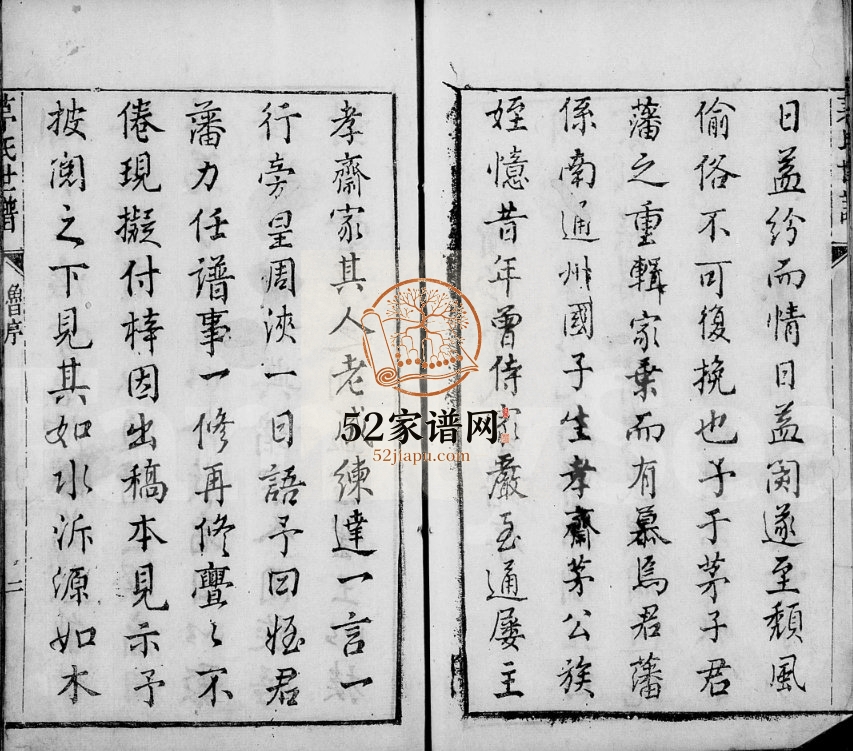 茅氏世譜
日益紛而情日益遂至頹風
偷俗不可復挽也予于茅子君
藩之重輯家乗而有慕焉君藩
係南通州國子生孝齋茅公族
姪憶昔年曾侍家嚴至通屢主
孝齋家其人老成練達一言一
行旁皇周浹一日語予曰姪君
藩力任譜事一修再修亹々不
倦現擬付梓因出稿本見示予
披閱之下見其如水泝源如木
茅氏世譜
魯序
二
52家谱网
52jiapu.com